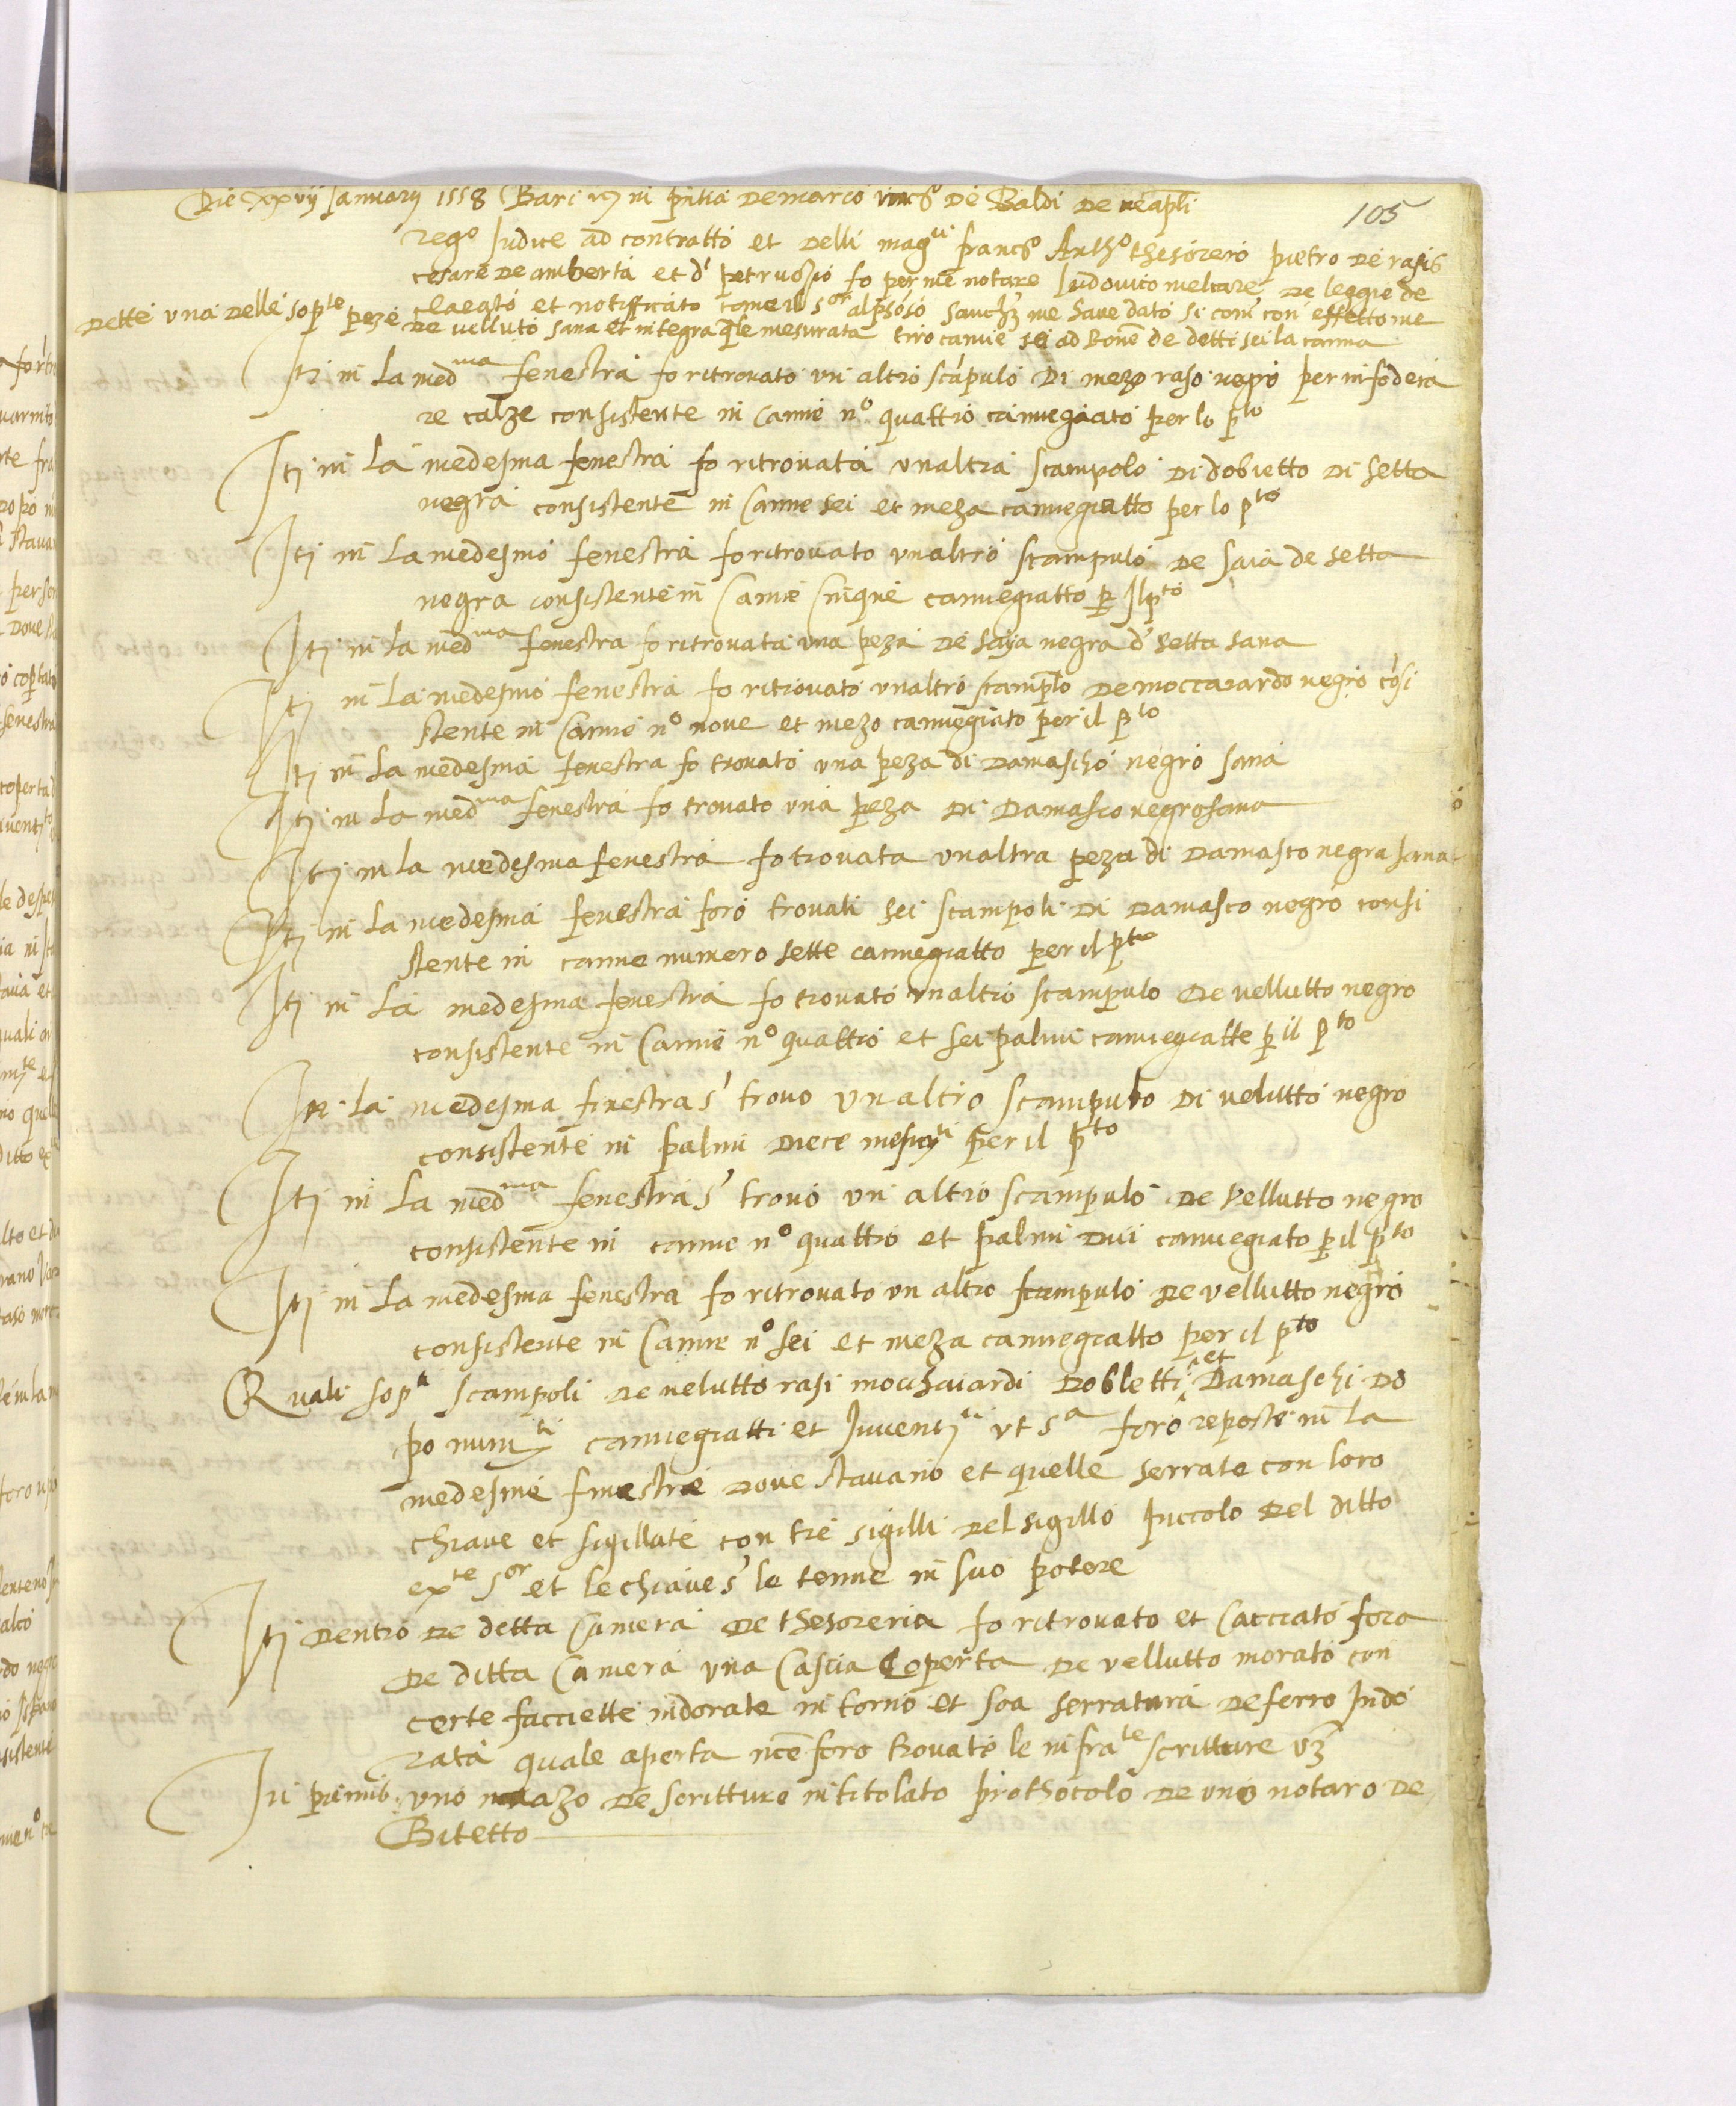 105
Die xxvij Januarij 1558 Bari in pntia de marco vinc° de Baldi de neapli
reg° Judice ad contratto et delli mag.ci franc° Anth° thesorero pietro de rasis
cesare de amberta et d' petruczio fo per me notare ludovico melcare de leggie de
claeato et notifficato come il s.or alfonso sanch3 me have dato si com' con effetto me
dette una delle sop.te peze de velluto sana et integra q.le mesurata tiro canne sei ad bone de detti sei la canna
Itj in la med.ma fenestra fo ritrovato un altro scapulo di mezo raso negro per infodera
re calze consistente in Canne n° quattro cannegiato per lo p.to
Itj in la medesma fenestra fo ritrovata unaltra scampolo di dobietto di setta
negra consistente in Canne sei et meza cannegiatto per lo p.to
Itj in la medesmo fenestra fo ritrovato unaltro scampulo de saia de setta
negra consistente in Canne Cinque cannegiatto p il p.to
Itj in la med.ma fenestra fo ritrovata una peza de saija negra d' setta sana
Itj in la medesmo fenestra fo ritrovato unaltro scamplo de moccaiardo negro cosi
stente in Canne n° nove et mezo cannegiato per il p.to
Itj in la medesma fenestra fo trovato una peza di damascho negro sana
Itj in la med.ma fenestra fo trovato una peza di Damasco negro sana
Itj in la medesma fenestra fo trovata unaltra peza di damasco negra sana
Itj in la medesma fenestra foro trovati sei scampoli di damasco negro consi
stente in canne numero sette cannegiatto per il p.to
Itj in la medesma fenestra fo trovato unaltro scampulo de vellutto negro
consistente in Canne n° quattro et sei palmi cannegiatte p il p.to
In la medesma finestra s' trovo un altro scampulo di velutto negro
consistente in palmi diece per il p.to
Itj in la med.ma fenestra s' trovo un altro scampulo de vellutto negro
consistente in canne n° quattro et palmi dui cannegiato p il p.to
Itj in la medesma fenestra fo ritrovato un altro scampulo de vellutto negro
consistente in Canne n° sei et meza cannegiatto per il p.to
Quali sop.ti scampoli de velutto rasi mochaiardi dobletti et Damaschi do
po num.ti cannegiatti et Inventj.ti ut s.a foro reposte in la
medesme finestre dove stavano et quelle serrate con loro
chiave et sigillate con tre sigilli del sigillo piccolo del ditto
ex.te s.or et le chiave s' le tenne in suo potere
Itj dentro de detta Camera de thesoreria fo ritrovato et Cacciato fora
de ditta Camera una Cascia Coperta de vellutto morato con
certe facciette indorate intorno et soa serratura de ferro Indo
rata quale aperta nce foro trovato le infra.te scritture v3
In primis uno mazo de scritture intitolato prothocolo de uno notaro de
Bitetto